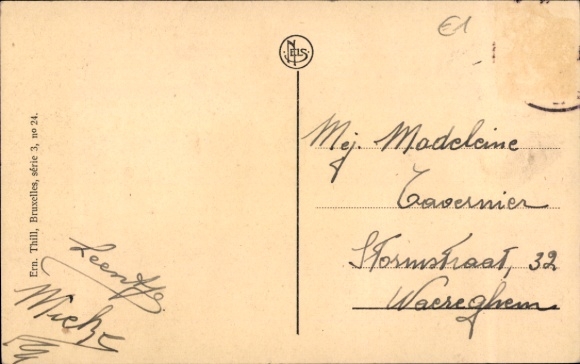 E1
NELS
Mej. Madeleine
Tavernier
Stormstraat, 32
Waereghem
Ern. Thill, Bruxelles, série 3, nº 24.
Leentje.